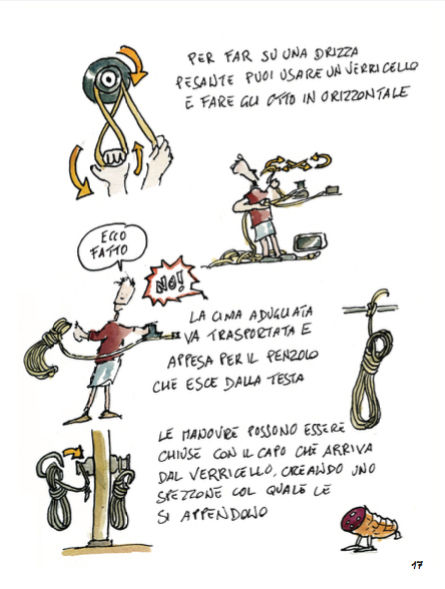 PER FAR SU UNA DRIZZA
PESANTE PUOI USARE UN VERRICELLO
E FARE GLI OTTO IN ORIZZONTALE
ECCO
FATTO
NO!
LA CIMA ADUGLIATA
VA TRASPORTATA E
APPESA PER IL PENZOLO
CHE ESCE DALLA TESTA
LE MANOVRE POSSONO ESSERE
CHIUSE CON IL CAPO CHE ARRIVA
DAL VERRICELLO, CREANDO UNO
SPEZZONE COL QUALE LE
SI APPENDONO
17